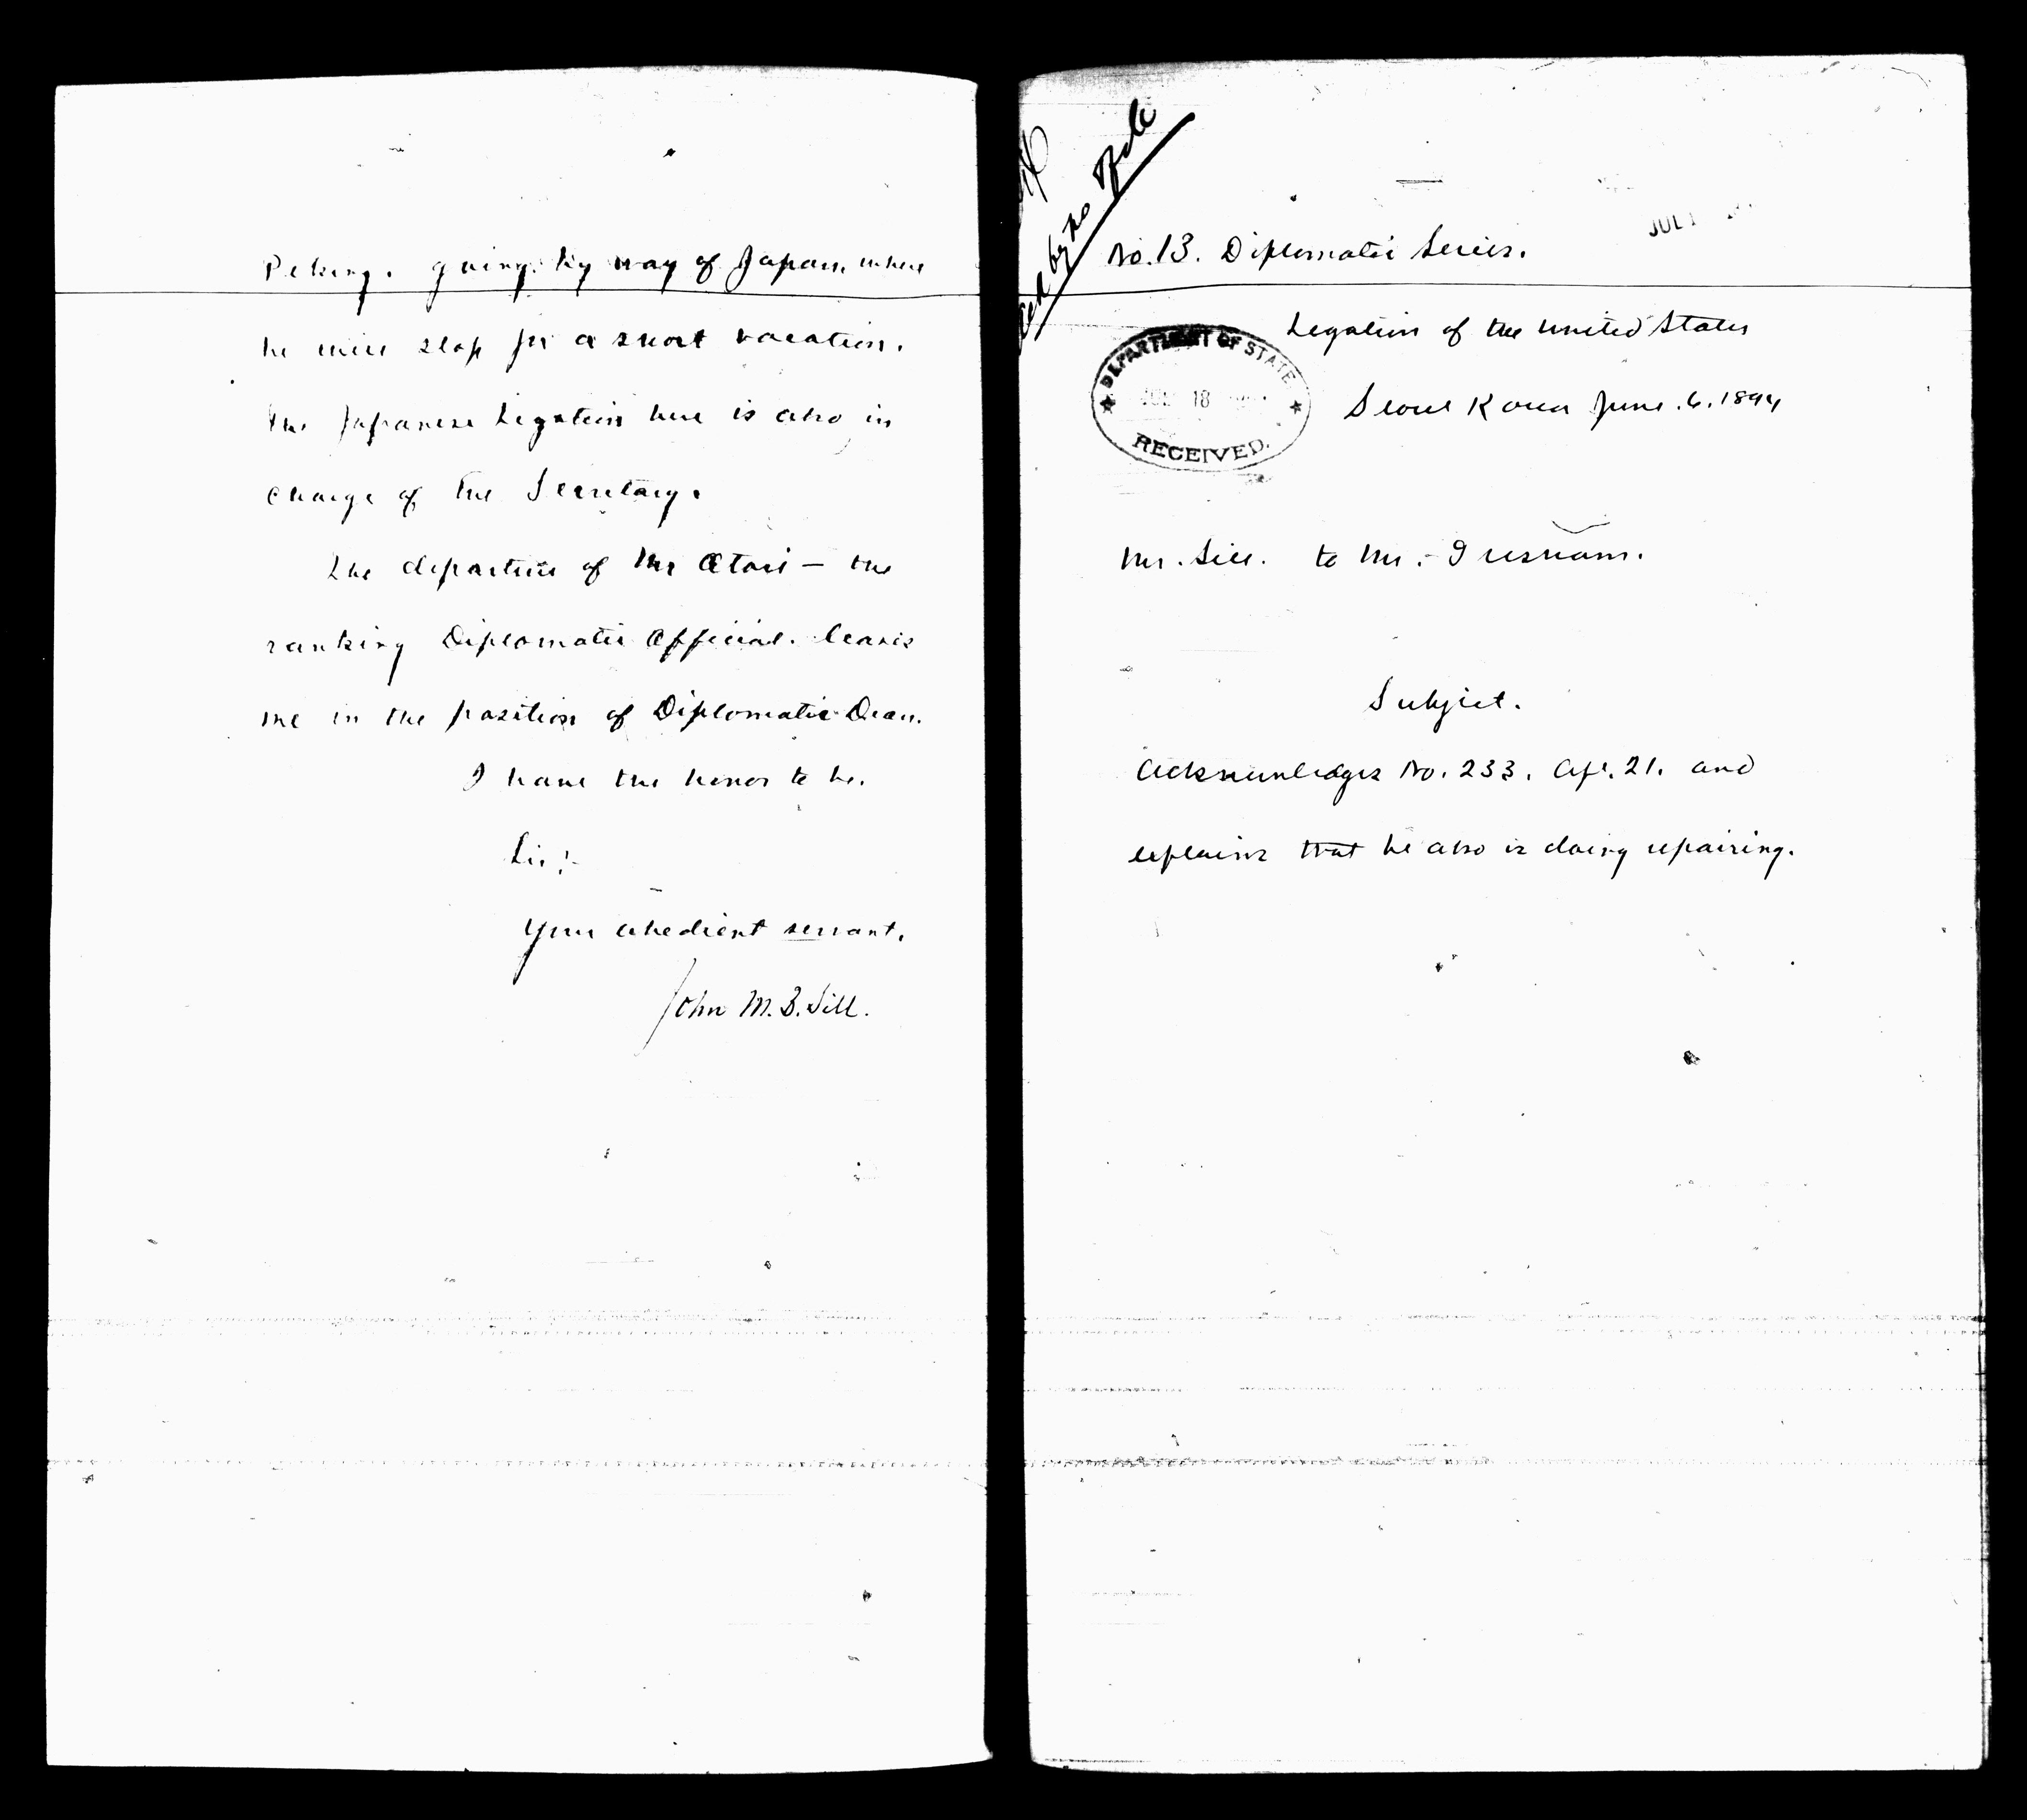 Peking. going by way of Japan, where
he will stop for a short vacation.
The Japanese Legation here is also in
charge of the Secretary.
The departure of Mr Otori — the
ranking Diplomatic Official. leaves
me in the position of Diplomatic Dean.
I have the honor to be.
Sir:-
Your obedient servant.
John M. B. Sill.
No. 13. Diplomatic Series.
JUL
Legation of the United States
DEPARTMENT OF STATE
18
RECEIVED.
Seoul Korea June. 6. 1894
Mr. Sill. to Mr. Gresham.
Subject.
Acknowledges No. 233. Ap'. 21. and
explains that he also is doing repairing.